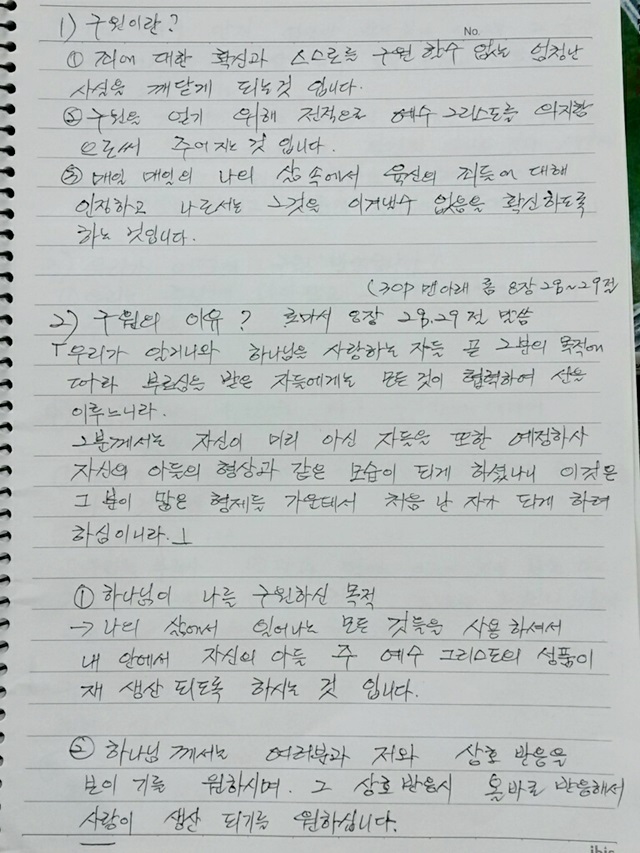 No.
1) 구원이란?
① 죄에 대한 확진과 스스로를 구원 할수 없는 엄청난
사실을 깨닫게 되는것 입니다.
② 구원을 얻기 위해 전적으로 예수 그리스도를 의지함
으로써 주어지는 것 입니다.
③ 매일 매일의 나의 삶 속에서 육신의 죄들에 대해
인정하고 나로서는 그것을 이겨낼수 없음을 확신하도록
하는 것입니다.
(30P 맨아래 롬 8장 28~29절
2) 구원의 이유? 로마서 8장 28.29절 말씀
「우리가 알거니와 하나님은 사랑하는 자들 곧 그분의 목적에
따라 부르심을 받은 자들에게는 모든 것이 협력하여 선을
이루느니라.
그분께서는 자신이 미리 아신 자들을 또한 예정하사
자신의 아들의 형상과 같은 모습이 되게 하셨나니 이것은
그 분이 많은 형제들 가운테서 처음 난 자가 되게 하려
하심이니라.」
① 하나님이 나를 구원하신 목적
→ 나의 삶에서 일어나는 모든 것들을 사용하셔서
내 안에서 자신의 아들 주 예수 그리스도의 성품이
재 생산 되도록 하시는 것 입니다.
② 하나님 께서는 여러분과 저와 상호 반응을
보이 기를 원하시며. 그 상호 반응시 올바로 반응해서
사랑이 생산 되기를 원하십니다.
ibis